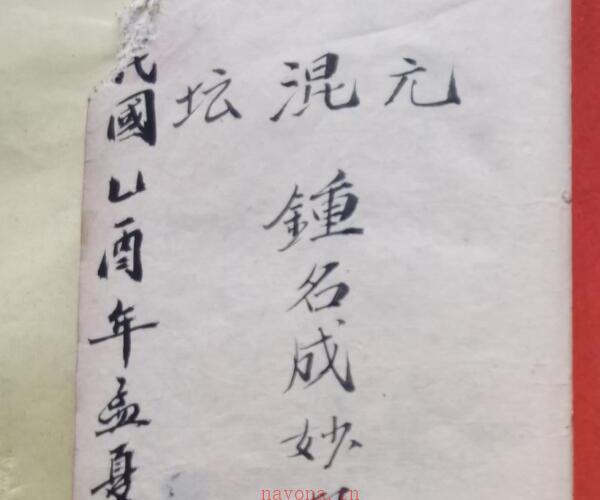 元混坛
鍾名成妙
民國乙酉年孟夏
nayona.cn